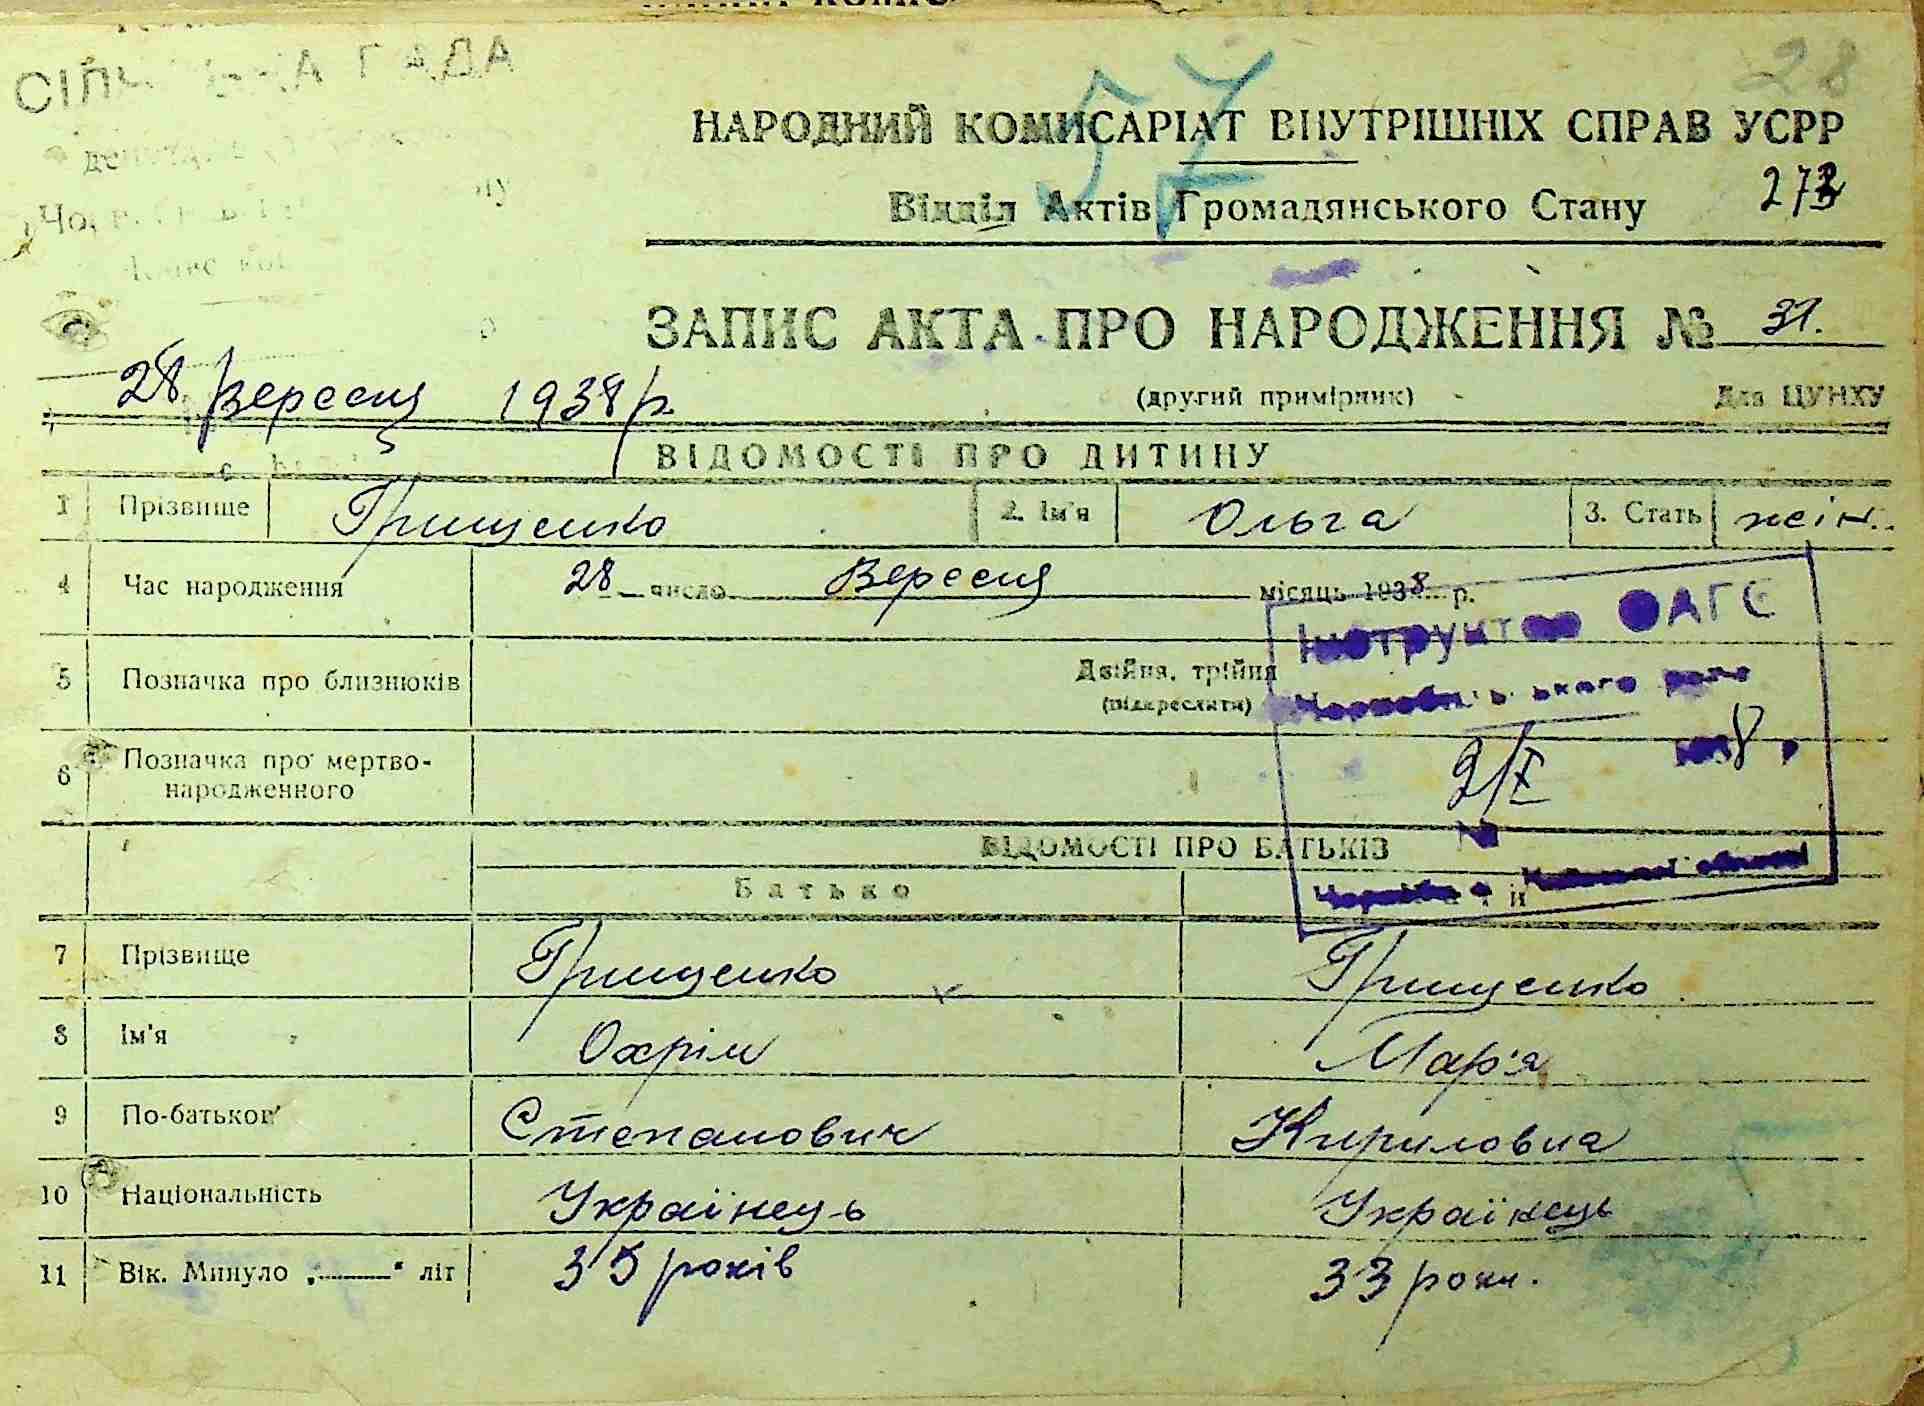 СІЛЬ РАДА
28
57
НАРОДНИЙ КОМИСАРІАТ ВНУТРІШНІХ СПРАВ УСРР
Відділ Актів Громадянського Стану
ЗАПИС АКТА ПРО НАРОДЖЕННЯ № 31.
28 Вересця 1938 р. (другий примірник) Для ЦУНХУ
ВІДОМОСТІ ПРО ДИТИНУ
1 Прізвище Грищенко 2. Ім'я Ольга 3. Стать жін.
4 Час народження 28 число Вересця місяць 1938 р.
Інструктор ОАГС
5 Позначка про близнюків Двійня, трійня
(підкреслити)
6 Позначка про мертво-
народженного
2/X 1938 р
№
ВІДОМОСТІ ПРО БАТЬКІВ
Батько
7 Прізвище Грищенко Грищенко
8 Ім'я Охрім Мар'я
9 По-батькові Степанович Кириловна
10 Національність Українець Українець
11 Вік. Минуло „ “ літ 35 років 33 роки.